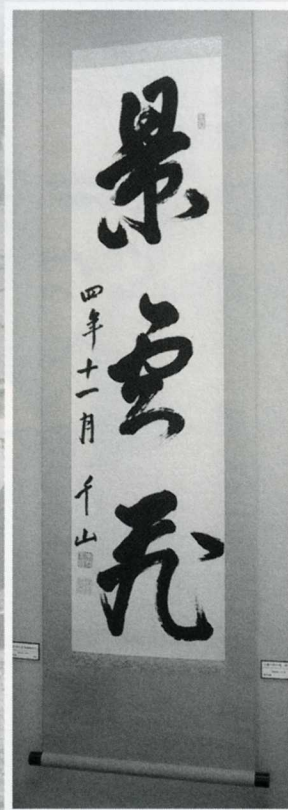 景雲飛
四年十一月 千山